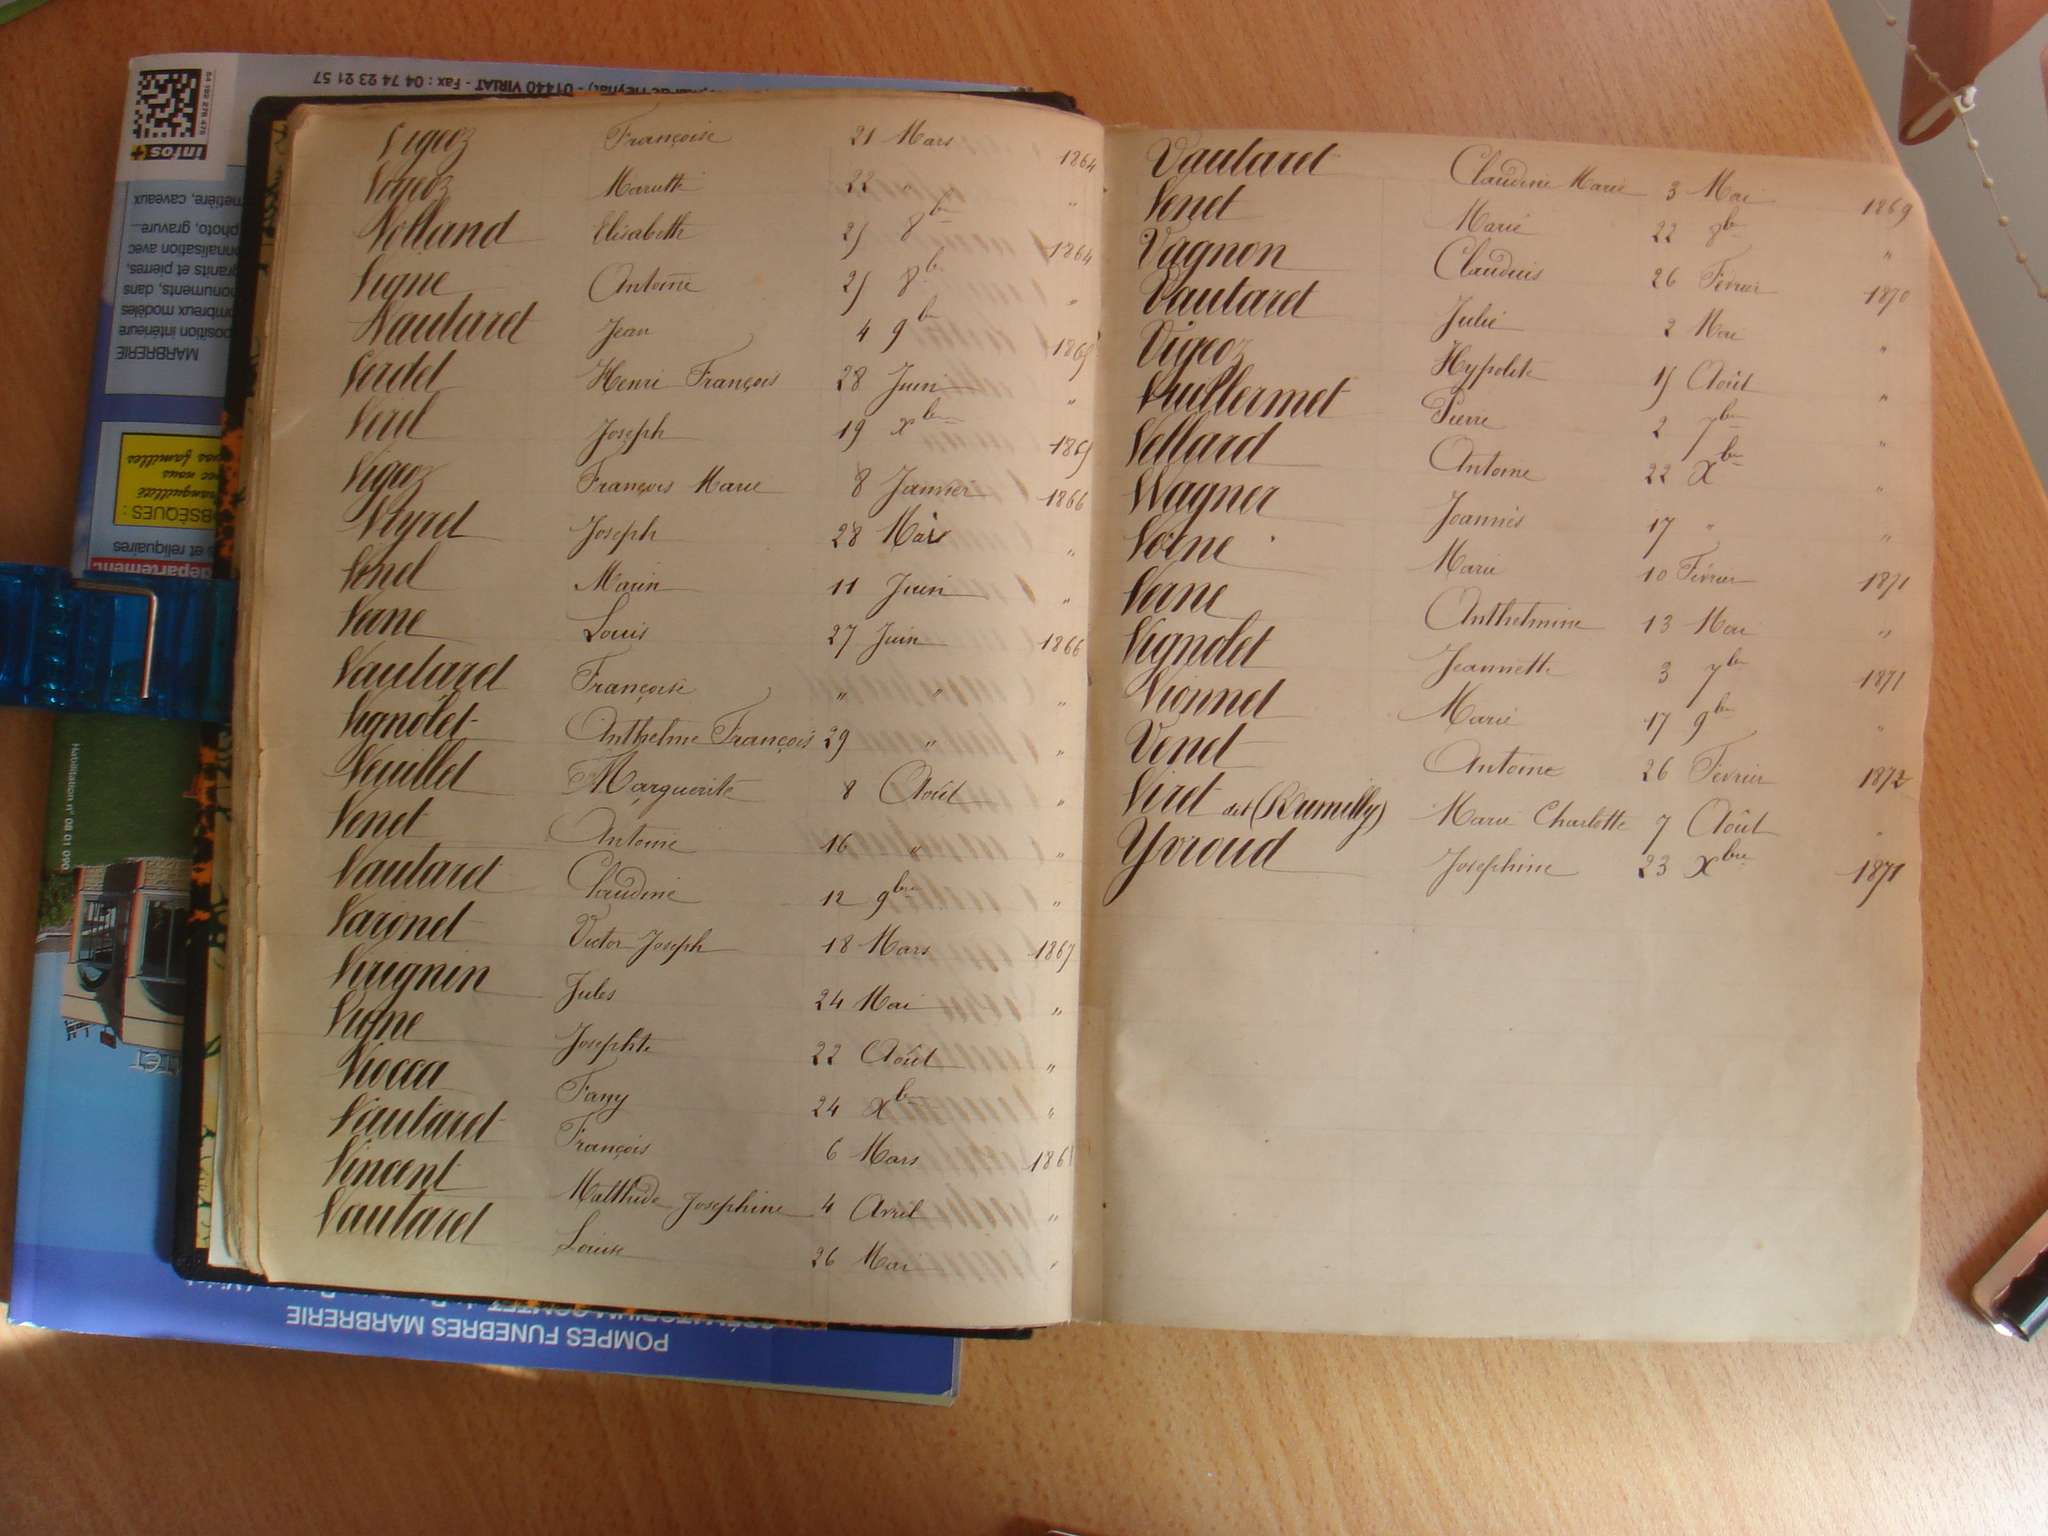 Vigeoz Françoise 21 Mars 1864
Vigeoz Mariette 22 " "
Volland Elisabeth 25 8bre 1864
Vigne Antoine 25 8bre "
Vautaret Jean 4 9bre 1865
Verdet Henri François 28 Juin "
Joseph 19 xbre 1865
Vigeoz François Marie 8 Janvier 1866
Veyret Joseph 28 Mars "
Venet Marin 11 Juin "
Verne Louis 27 Juin 1866
Vautaret Françoise " " "
Vignolet Anthelme François 29 " "
Veuillet Marguerite 8 Août "
Venet Antoine 16 " "
Vautaret Claudine 12 9bre "
Varonet Victor Joseph 18 Mars 1867
Virignin Jules 24 Mai "
Vigne Josephte 22 Août "
Viocca Fany 24 Xbre "
Vautaret François 6 Mars
Vincent Malthide Josephine 4 Avril "
Vautaret Louise 26 Mai "
Vautaret Claudine Marie 3 Mai 1869
Venet Marie 22 8bre "
Vagnon Claudius 26 Février 1870
Vautaret Julie 2 Mai "
Vigeoz Hypolite 15 Août "
Vuillermet Pierre 2 7bre "
Vellard Antoine 22 Xbre "
Wagner Joannès 17 " "
Verne Marie 10 Février 1871
Verne Anthelmine 13 Mai "
Vignolet Jeannette 3 7bre 1871
Vionnet Marie 17 9bre "
Venet Antoine 26 Février 1872
Viret dit (Rumilly) Marie Charlotte 7 Août "
Yvroud Josephine 23 Xbre 1871
01440 VIRIAT - Fax : 04 74 23 21 57
infos+
metière, caveaux
photo, gravure...
nnalisation avec
granits et pierres,
onuments, dans
ombreux modèles
position intérieure
MARBRERIE
OBSÈQUES :
ranquillité
vec nous
vos familles
s et reliquaires
département
Habilitation n° 08 01 090
POMPES FUNEBRES MARBRERIE